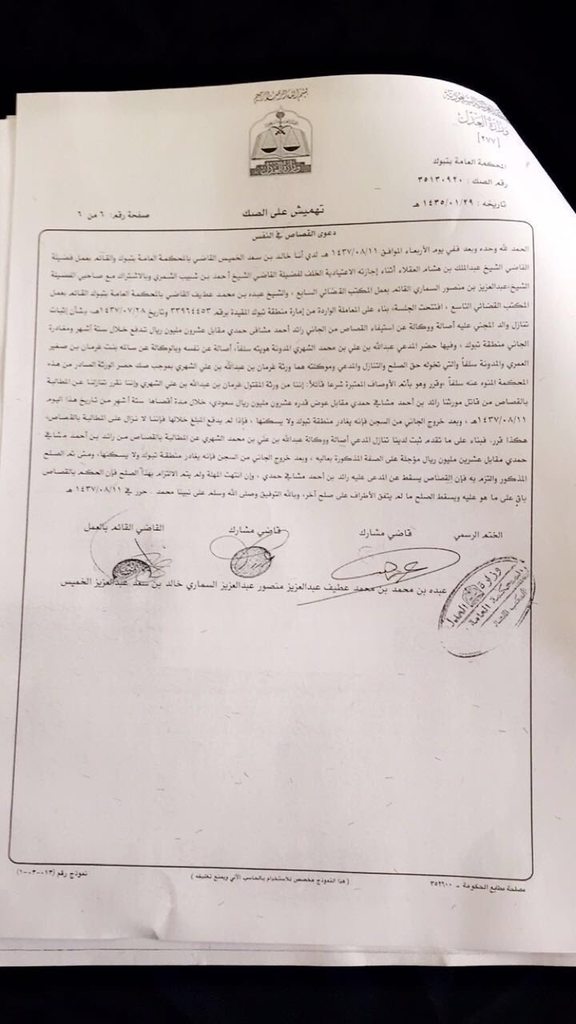 بسم الله الرحمن الرحيم
وزارة العدل
[٢٧٧]
وزارة العدل
المحكمة العامة بتبوك
رقم الصك : ٣٥١٣٠٩٢٠
تاريخه : ١٤٣٥/٠١/٢٩ هـ
تهميش على الصك
صفحة رقم: ٦ من ٦
دعوى القصاص في النفس
الحمد لله وحده وبعد ففي يوم الأربعاء الموافق ١٤٣٧/٠٨/١١ هـ لدي أنا خالد بن سعد الخميس القاضي بالمحكمة العامة بتبوك والقائم بعمل فضيلة
القاضي الشيخ عبدالملك بن هشام العقلاء أثناء إجازته الاعتيادية الخلف لفضيلة القاضي الشيخ أحمد بن شبيب الشمري وبالاشتراك مع صاحبي الفضيلة
الشيخ عبدالعزيز بن منصور السماري القائم بعمل المكتب القضائي السابع ، والشيخ عبده بن محمد عطيف القاضي بالمحكمة العامة بتبوك القائم بعمل
المكتب القضائي التاسع ، افتتحت الجلسة، بناء على المعاملة الواردة من إمارة منطقة تبوك المقيدة برقم ٣٣٩٦٤٤٥٣ وتاريخ ١٤٣٧/٠٧/٢٨هـ، بشأن إثبات
تنازل والد المجني عليه أصالة ووكالة عن استيفاء القصاص من الجاني رائد أحمد مشافي حمدي مقابل عشرون مليون ريال تندفع خلال ستة أشهر ومغادرة
الجاني منطقة تبوك ، وفيها حضر المدعي عبدالله بن علي بن محمد الشهري المدونة هويته سلفاً، أصالة عن نفسه وبالوكالة عن سالمه بنت غرمان بن صغير
العمري والمدونة سلفاً والتي تخوله حق الصلح والتنازل والمدعي وموكلته هما ورثة غرمان بن عبدالله بن علي الشهري بموجب صك حصر الورثة الصادر من هذه
المحكمة المنوه عنه سلفاً ،وقرر وهو بأتم الأوصاف المعتبرة شرعا قائلاً: إننا من ورثة المقتول غرمان بن عبدالله بن علي الشهري وإننا نقرر تنازلنا عن المطالبة
بالقصاص من قاتل مورثنا رائد بن أحمد مشافي حمدي مقابل عوض قدره عشرون مليون ريال سعودي، خلال مدة أقصاها ستة أشهر من تاريخ هذا اليوم
١٤٣٧/٠٨/١١هـ ، وبعد خروج الجاني من السجن فإنه يغادر منطقة تبوك ولا يسكنها ، فإذا لم يدفع المبلغ خلالها فإننا لا نزال على المطالبة بالقصاص،
هكذا قرر. فبناء على ما تقدم ثبت لدينا تنازل المدعي أصالة ووكالة عبدالله بن علي بن محمد الشهري عن المطالبة بالقصاص من رائد بن أحمد مشافي
حمدي مقابل عشرين مليون ريال مؤجلة على الصفة المذكورة بعاليه ، وبعد خروج الجاني من السجن فإنه يغادر منطقة تبوك ولا يسكنها، ومتى تم الصلح
المذكور والتزم به فإن القصاص يسقط عن المدعى عليه رائد بن أحمد مشافي حمدي ، وإن انتهت المهلة ولم يتم الالتزام بهذا الصلح فإن الحكم بالقصاص
باق على ما هو عليه ويسقط الصلح ما لم يتفق الأطراف على صلح آخر، وبالله التوفيق وصلى الله وسلم على نبينا محمد . حرر في ١٤٣٧/٠٨/١١ هـ
الختم الرسمي
قاضي مشارك
قاضي مشارك
القاضي القائم بالعمل
عبده بن محمد بن محمد عطيف عبدالعزيز منصور عبدالعزيز السماري خالد بن سعد عبدالعزيز الخميس
وزارة العدل
المحكمة العامة
مصلحة مطابع الحكومة - ٣٥٢٦١٠
( هذا النموذج مخصص للاستخدام بالحاسب الآلي ويمنع تغليفه )
نموذج رقم (١٣-٠٣-١)